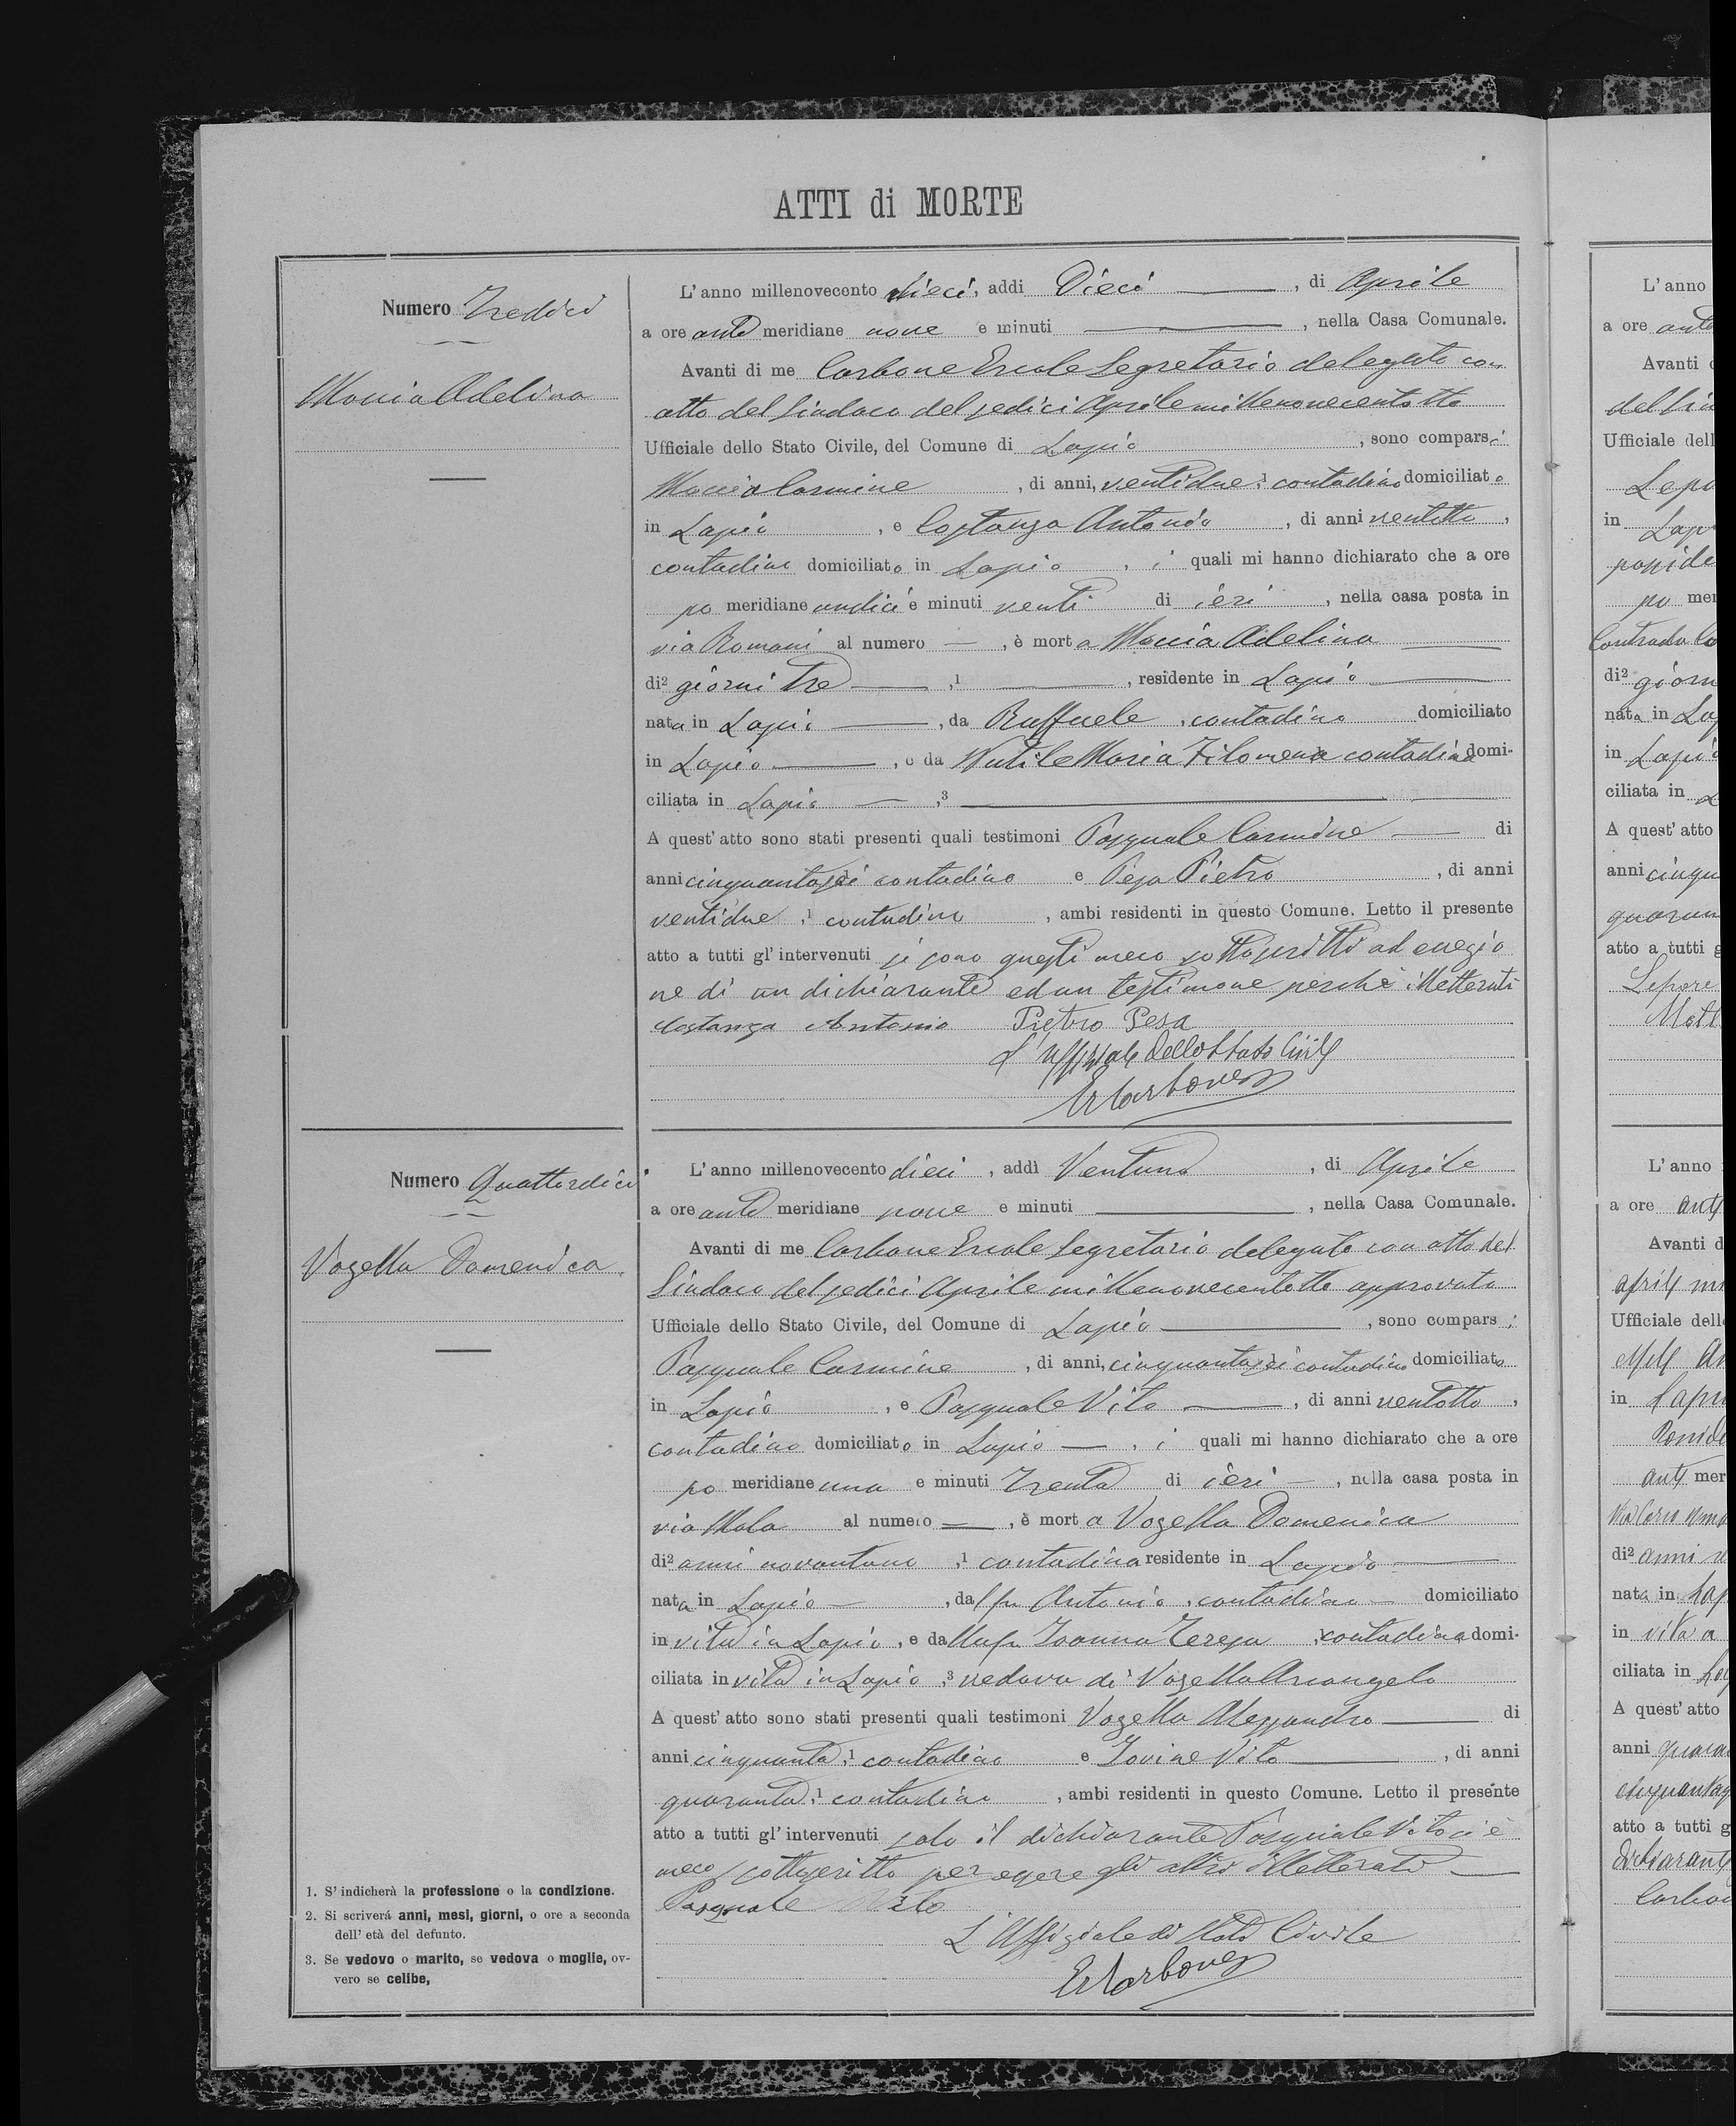 ATTI di MORTE
Numero Tredici
Maccia Adelina
L'anno millenovecento dieci, addì Dieci, di Aprile
a ore ante meridiane nove e minuti —, nella Casa Comunale.
Avanti di me Carbone Ercole Segretario delegato con
atto del Sindaco del sedici Aprile millenovecentotto
Ufficiale dello Stato Civile, del Comune di Lapio, sono comparsi
Maccia Carmine, di anni, ventidue,¹ contadino domiciliato
in Lapio, e Costanza Antonio, di anni ventotto,
contadino domiciliato in Lapio, i quali mi hanno dichiarato che a ore
po meridiane undici e minuti venti di ieri, nella casa posta in
via Romani al numero —, è morta Maccia Adelina
di² giorni tre —,¹ —, residente in Lapio —
nata in Lapio —, da Raffaele, contadino domiciliato
in Lapio —, e da Nutile Maria Filomena contadina domi-
ciliata in Lapio —,³ —
A quest'atto sono stati presenti quali testimoni Pasquale Carmine — di
anni cinquantasei contadino e Pesa Pietro, di anni
ventidue,¹ contadino, ambi residenti in questo Comune. Letto il presente
atto a tutti gl'intervenuti si sono questi meco sottoscritti ad eccezio
ne di un dichiarante ed un testimone perchè illetterati
Costanza Antonio Pietro Pesa
L'Uffiziale dello Stato Civile
ErCarbone
Numero Quattordici
Vozella Domenica
L'anno millenovecento dieci, addì Ventuno, di Aprile
a ore ante meridiane nove e minuti —, nella Casa Comunale.
Avanti di me Carbone Ercole Segretario delegato con atto del
Sindaco del sedici Aprile millenovecentotto approvato
Ufficiale dello Stato Civile, del Comune di Lapio —, sono comparsi
Pasquale Carmine, di anni, cinquantasei contadino domiciliato
in Lapio, e Pasquale Vito —, di anni ventotto,
contadino domiciliato in Lapio —, i quali mi hanno dichiarato che a ore
po meridiane una e minuti trenta di ieri —, nella casa posta in
via Mala al numero —, è morta Vozella Domenica
di² anni novantuno,¹ contadina residente in Lapio —
nata in Lapio —, dal fu Antonio, contadino — domiciliato
in vita in Lapio, e dalla fu Ioanna Teresa, contadina domi-
ciliata in vita in Lapio,³ vedova di Vozella Arcangelo
A quest'atto sono stati presenti quali testimoni Vozella Alessandro — di
anni cinquanta,¹ contadino e Iovine Vito —, di anni
quaranta,¹ contadino, ambi residenti in questo Comune. Letto il presente
atto a tutti gl'intervenuti solo il dichiarante Pasquale Vito si è
meco sottoscritto per essere gli altri illetterati —
Pasquale Vito
L'Uffiziale di Stato Civile
ErCarbone
1. S'indicherà la professione o la condizione.
2. Si scriverà anni, mesi, giorni, o ore a seconda
dell'età del defunto.
3. Se vedovo o marito, se vedova o moglie, ov-
vero se celibe,
L'anno
a ore ante
Avanti d
del Sin
Ufficiale dell
Lepo
in Lap
po mer
Contrada Co
di² giorn
nata in La
in Lapio
ciliata in L
A quest'atto
anni cinqu
quaran
atto a tutti g
Lepore
L'anno
a ore
Avanti d
Ufficiale dell
in Lapi
mer
di² anni
nata in Lap
in vita
ciliata in
A quest'atto
anni
atto a tutti g
dichiarant
Carbon